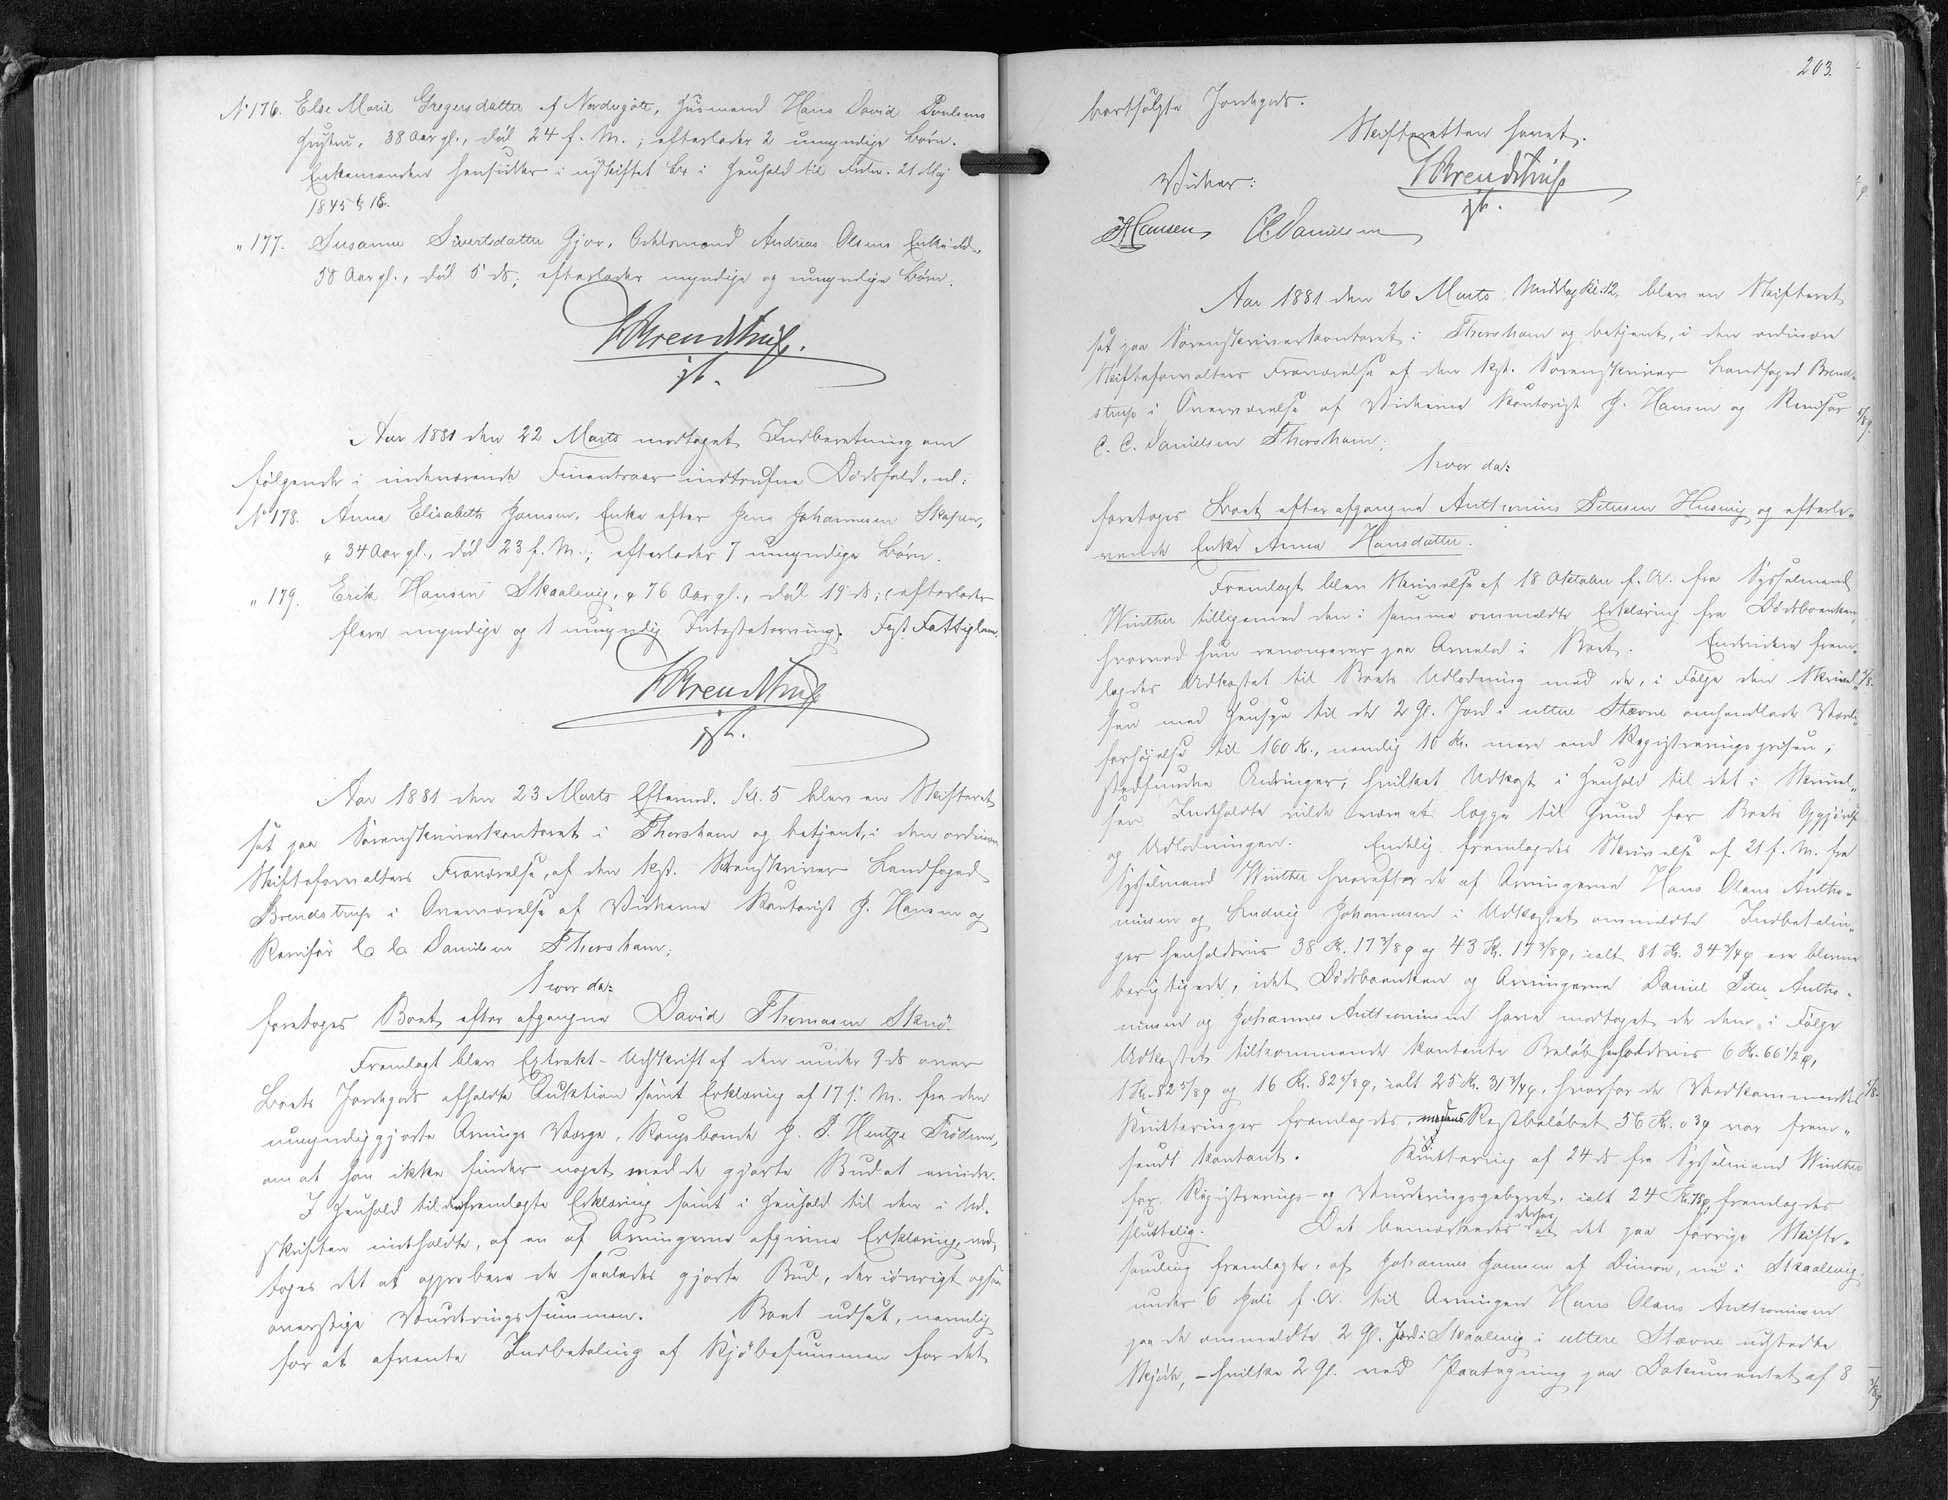 N° 176. Else Marie Gregersdatter af Nordregöte, Huusmand Hans David Poulsens
Hustru, 38 Aar gl., död 24 f. M.; efterlader 2 umyndige Börn.
Enkemanden hensidder i uskiftet Bo i Henhold til Frdn. 21 Maj
1845 § 18.
" 177. Susanne Sivertsdatter Gjov, Odelsmand Andreas Olsens Enke
58 Aar gl., död 5 ds; efterlader myndige og umyndige Börn.
Brendstrup.
Aar 1881 den 22 Marts modtaget Indberetning om
fölgende i indeværende Finantsaar indtrufne Dödsfald, nl:
N° 178. Anna Elisabeth Jansen, Enke efter Jens Johannesen Skopen,
34 Aar gl., död 23 f. M.; efterlader 7 umyndige Börn.
" 179. Erik Hansen Skaalevig, 76 Aar gl., död 19 ds; efterlader
flere myndige og 1 umyndig Intestatarving. Fattiglem.
Brendstrup
Aar 1881 den 23 Marts Eftermd. Kl. 5 blev en Skifteret
sat paa Sorenskriverkontoret i Thorshavn og betjent, i den ordinære
Skifteforvalters Fraværelse, af den kst. Sorenskriver Landfoged
Brendstrup i Overværelse af Vidnerne Kontorist J. Hansen og
Revisor C C Danielsen Thorshavn;
hvor da:
foretoges Boet efter afgangne David Thomasen Skuö.
Fremlagt blev Extrakt-Udskrift af den under 9 ds over
Boets Jordegods afholdte Auktion samt Erklæring af 17 s. M. fra den
umyndiggjorte Arvings Værge, Kongsbonde J. P. Hentze Trödum,
om at han ikke finder noget mod de gjorte Bud at erindre.
I Henhold til den fremlagte Erklæring samt i Henhold til den i Ud-
skriften indholdte, af en af Arvingerne afgivne Erklæring, ved-
toges det at approbere de saaledes gjorte Bud, der iövrigt ogsaa
overstige Vurderingssummen. Boet udsat, nemlig
for at afvente Indbetaling af Kjöbesummen for det
203.
bortsolgte Jordegods.
Skifteretten hævet.
Brendstrup
Vidner:
JHansen CCDanielsen
Aar 1881 den 26 Marts Middag Kl. 12, blev en Skifteret
sat paa Sorenskriverkontoret i Thorshavn og betjent, i den ordinære
Skifteforvalters Fraværelse af den kst. Sorenskriver Landfoged Brend-
strup i Overværelse af Vidnerne Kontorist J. Hansen og Revisor
C. C. Danielsen Thorshavn;
hvor da:
foretoges Boet efter afgangne Anthonius Petersen Husevig og efterle-
vende Enke Anna Hansdatter.
Fremlagt blev Skrivelse af 18 Oktober f. A. fra Sysselmand
Winther tilligemed den i samme ommeldte Erklæring fra Dödsboenken,
hvorved hun renoncerer paa Arvelod i Boet. Endvidere frem-
lagdes Udkastet til Boets Udlodning med de, i Fölge den Skrivel-
sen med Hensyn til de 2 Gl. Jord i uttere Stævne omhandlede Værdi-
forhöjelse til 160 Kr., nemlig 10 Kr. mere end Registreringsprisen,
stedfundne Ændringer, hvilket Udkast i Henhold til det i Skrivel-
sen Indholdte vilde være at lægge til Grund for Boets Opgjörelse
og Udlodningen. Endelig fremlagdes Skrivelse af 21 f. M. fra
Sysselmand Winther hvorefter de af Arvingerne Hans Olaus Antho-
niusen og Ludvig Johannesen i Udkastet ommeldte Indbetalin-
ger henholdsvis 38 Kr. 17 3/8 ø og 43 Kr. 17 3/8 ø, ialt 81 Kr. 34 3/4 ø ere blevne
berigtigede, idet Dödsboenken og Arvingerne Daniel Peter Antho-
niusen og Johannes Anthoniusen have modtaget de dem, i Fölge
Udkastet tilkommende kontante Belöb henholdsvis 6 Kr. 66 1/2 ø,
1 Kr. 82 5/8 ø og 16 Kr. 82 5/8 ø, ialt 25 Kr. 31 3/4 ø, hvorfor de Vedkommendes
Kvitteringer fremlagdes, medens Restbelöbet 56 Kr. 03 ø var frem-
sendt kontant. Kvittering af 24 ds fra Sysselmand Winther
for Registrerings- og Vurderingsgebyret, ialt 24 Kr. fremlagdes
sluttelig. Det bemærkedes derhos at det paa forrige Skifte-
samling fremlagte, af Johannes Jansen af Dimon, nu i Skaalevig,
under 6 Juli f. A. til Arvingen Hans Olaus Anthoniusen
paa de ommeldte 2 Gl. Jord i Skaalevig i uttere Stævne udstedte
Skjöde, - hvilke 2 Gl. ved Paategning paa Dokumentet af 8